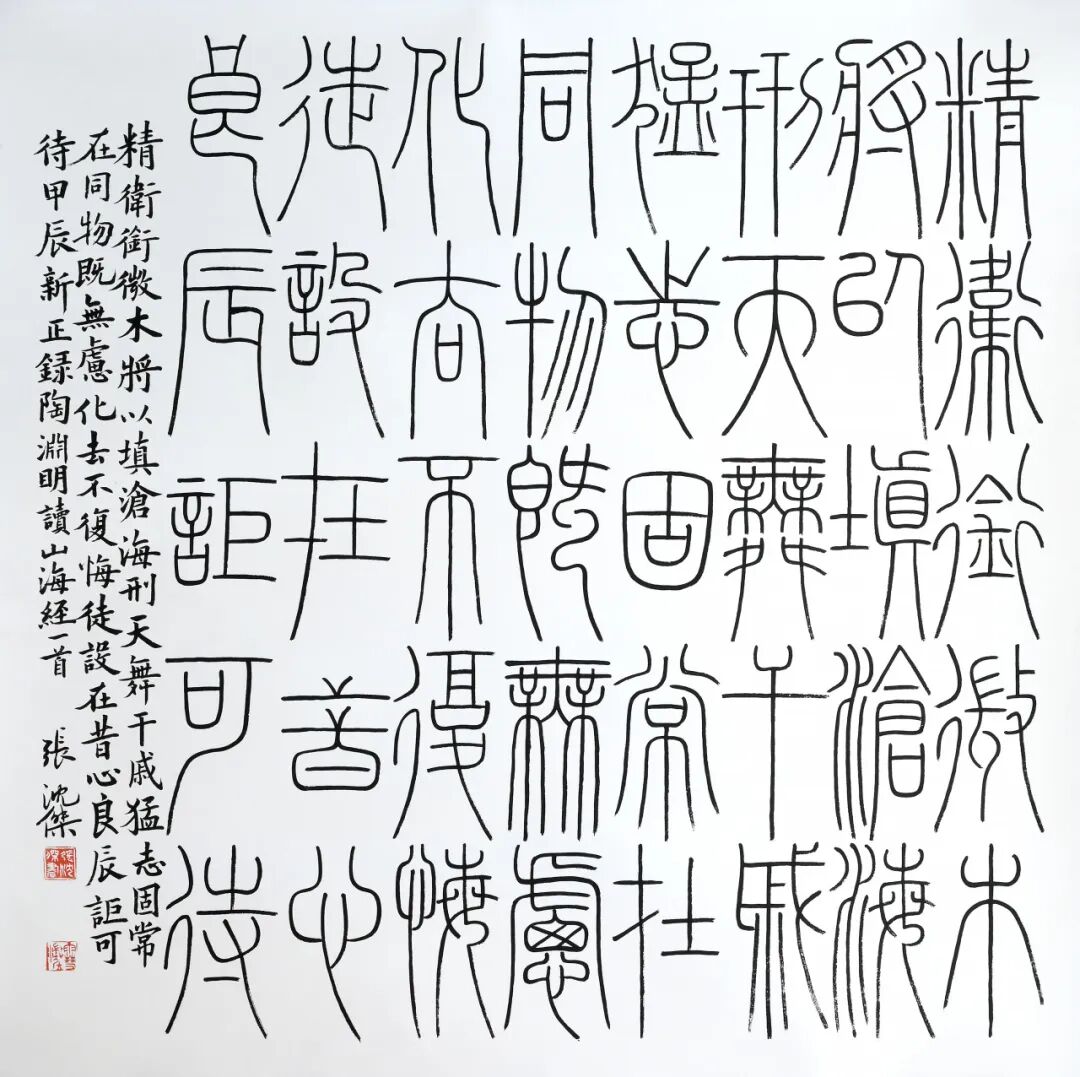 精衛銜微木
將以填滄海
刑天舞干戚
猛志固常在
同物既無慮
化去不復悔
徒設在昔心
良辰詎可待
精衛銜微木將以填滄海刑天舞干戚猛志固常
在同物既無慮化去不復悔徒設在昔心良辰詎可
待甲辰新正録陶淵明讀山海經一首 張沈傑